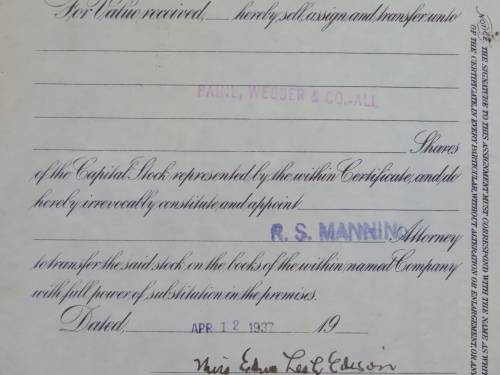 For Value received, hereby sell, assign and transfer unto
PAINE, WEBBER & CO.-ALL
Shares
of the Capital Stock represented by the within Certificate, and do
hereby irrevocably constitute and appoint
R. S. MANNING Attorney
to transfer the said stock on the books of the within named Company
with full power of substitution in the premises.
Dated, APR 12 1937 19
Miss Edna Edison
NOTICE. THE SIGNATURE TO THIS ASSIGNMENT MUST CORRESPOND WITH THE NAME AS WRIT
OF THE CERTIFICATE, IN EVERY PARTICULAR, WITHOUT ALTERATION OR ENLARGEMENT, OR ANY